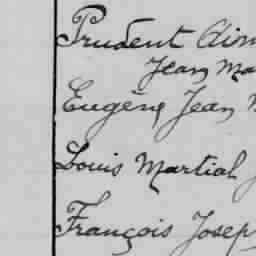 Prudent Aim
Jean Ma
Eugène Jean
Louis Martial
François Josep